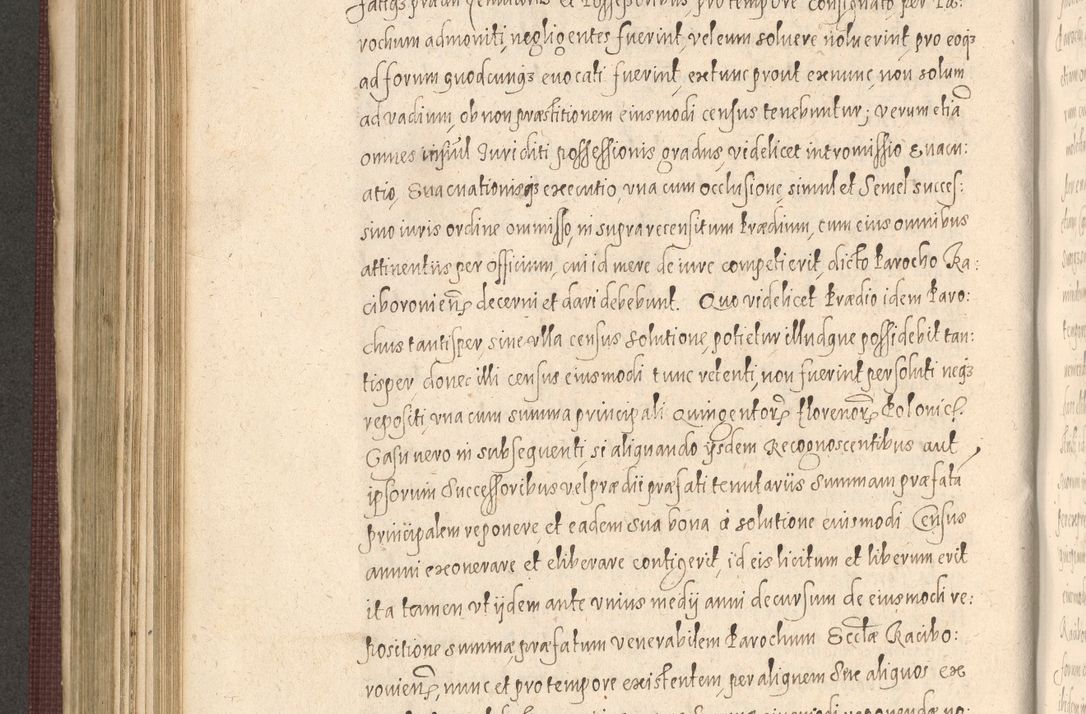 fatigs prædii Tenutariis et Possessoribus pro tempore consignato, per Pa:
rochum admoniti, negligentes fuerint, vel eum solvere noluerint, pro eoqꝫ
ad forum quodcunqꝫ evocati fuerint, extunc prout exnunc, non solum
ad vadium, ob non præstitionem eiusmodi census tenebuntur; verum etiã
omnes insiul Iuriditi possessionis gradus, videlicet intromissio Evacu:
atio, Evacuationisqꝫ executio, una cum occlusione, simul et Semel succes:
sivo iuris ordine ommisso, in suprarecensitum Prædium, cum eius omnibus
attinentiis per Officium, cui id mere de iure competierit, dicto Parocho Ra:
ciboronieñ decerni et dari debebunt. Quo videlicet Prædio idem Paro:
chus tantisper, sine ulla census solutione, potietur illudque possidebit tan:
tisper donec illi census eiusmodi tunc retenti, non fuerint persoluti neqꝫ
repositi, una cum summa principali Quingentorꝝ florenorꝝ Polonicł.
Casu vero in subsequenti, si aliquando ijsdem Recognoscentibus aut
ipsorum Successoribus vel prædii præfati tenutariis Summam præfatã
principalem reponere, et eadem sua bona à solutione eiusmodi Census
annui exonerare et eliberare contigerit, id eis licitum et liberum erit
ita tamen ut ijdem ante unius medij anni decursum de eiusmodi re:
positione summæ, præfatum venerabilem Parochum Ecctæ Racibo:
ronieñ, nunc et pro tempore existentem, per aliquem sive aliquos ex